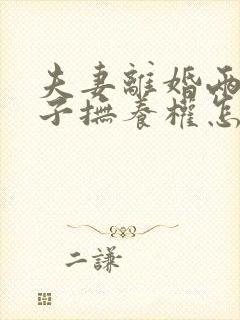 夫妻離婚兩
子撫養權怎
二謙